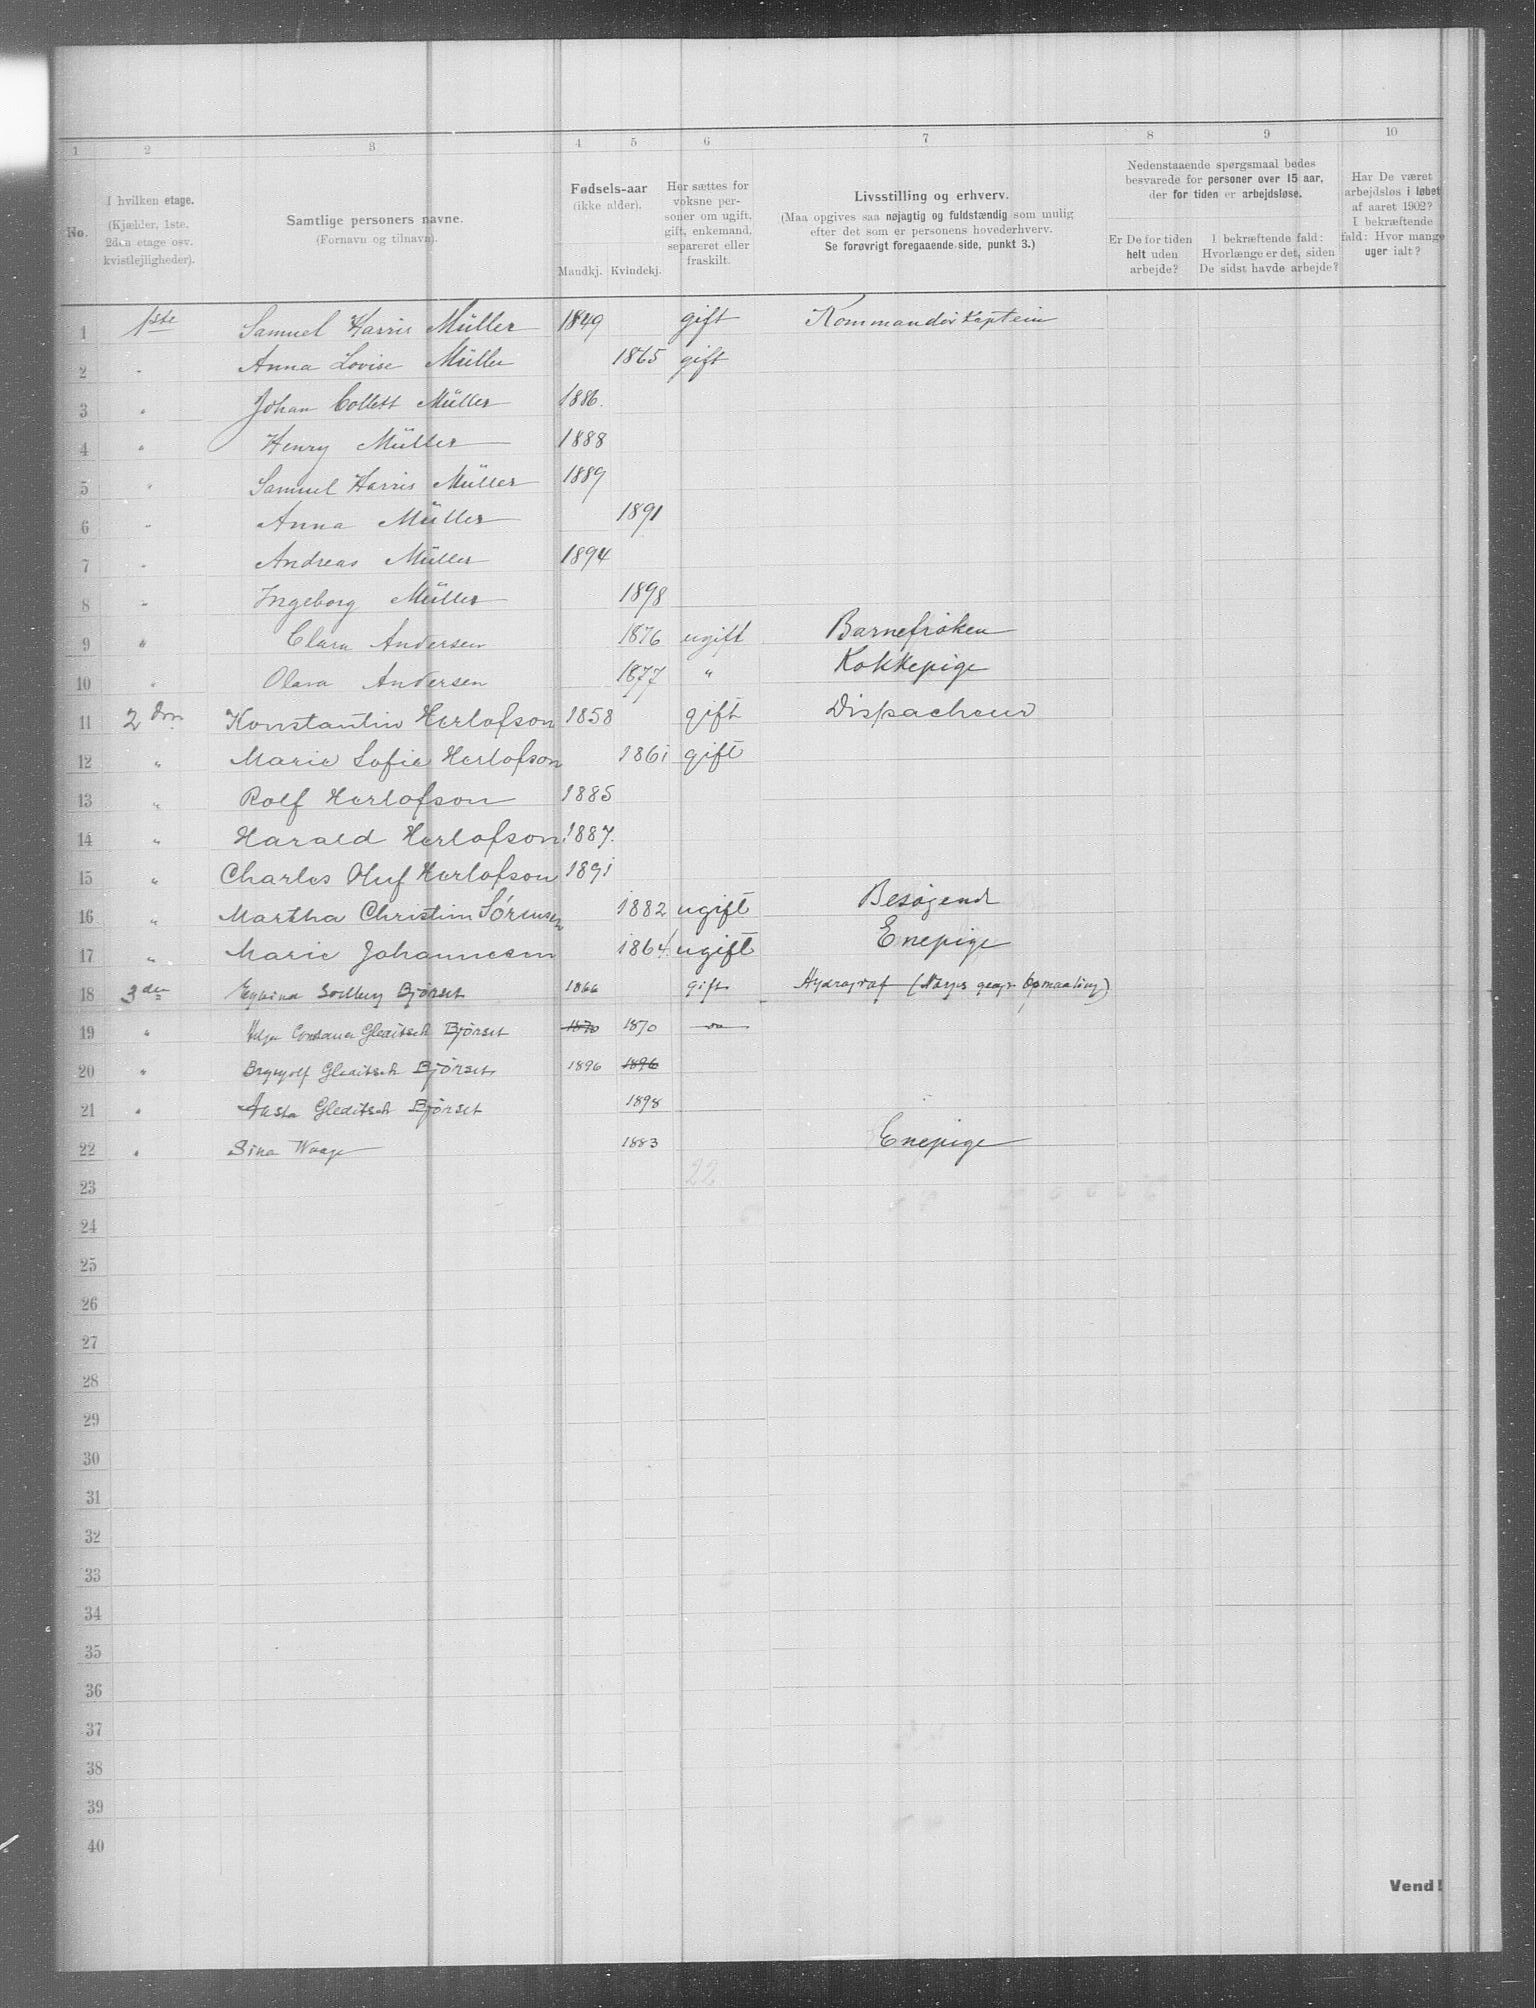 1 2 3 4 5 6 7 8 9 10
No.
I hvilken etage.
(Kjælder, 1ste.
2den etage osv.
kvistlejligheder).
Samtlige personers navne.
(Fornavn og tilnavn).
Fødsels-aar
(ikke alder).
Mandkj. Kvindekj.
Her sættes for
voksne per-
soner om ugift,
gift, enkemand,
separeret eller
fraskilt.
Livsstilling og erhverv.
(Maa opgives saa nøjagtig og fuldstændig som mulig
efter det som er personens hovederhverv.
Se forøvrigt foregaaende side, punkt 3.)
Nedenstaaende spørgsmaal bedes
besvarede for personer over 15 aar,
der for tiden er arbejdsløse.
Er De for tiden
helt uden
arbejde?
I bekræftende fald:
Hvorlænge er det, siden
De sidst havde arbejde?
Har De været
arbejdsløs i løbet
af aaret 1902?
I bekræftende
fald: Hvor mange
uger ialt?
1 1ste Samuel Harris Müller 1849 gift Kommandørkaptein
2 " Anna Lovise Müller 1865 gift
3 " Johan Collett Müller 1886.
4 " Henry Müller 1888
5 " Samuel Harris Müller 1889
6 " Anna Müller 1891
7 " Andreas Müller 1894
8 " Ingeborg Müller 1898
9 " Clara Andersen 1876 ugift Barnefrøken
10 " Olava Andersen 1877 " Kokkepige
11 2den Konstantin Herlofson 1858 gift Dispacheur
12 " Marie Sofie Herlofson 1861 gift
13 " Rolf Herlofson 1885
14 " Harald Herlofson 1887.
15 " Charles Oluf Herlofson 1891
16 " Martha Christine Sørensen 1882 ugift Besøgend
17 " Marie Johannesen 1864 ugift Enepige
18 3die Eyvind Bjørset 1866 gift Hydrograf (Norges geogr Opmaaling)
19 " Gleditsch Bjørset 1870 1870
20 " Brynjolf Gleditsch Bjørset 1896 1896
21 " Aasta Gleditsch Bjørset 1898
22 " Sina Waage 1883 Enepige
23 22
24
25
26
27
28
29
30
31
32
33
34
35
36
37
38
39
40
Vend!